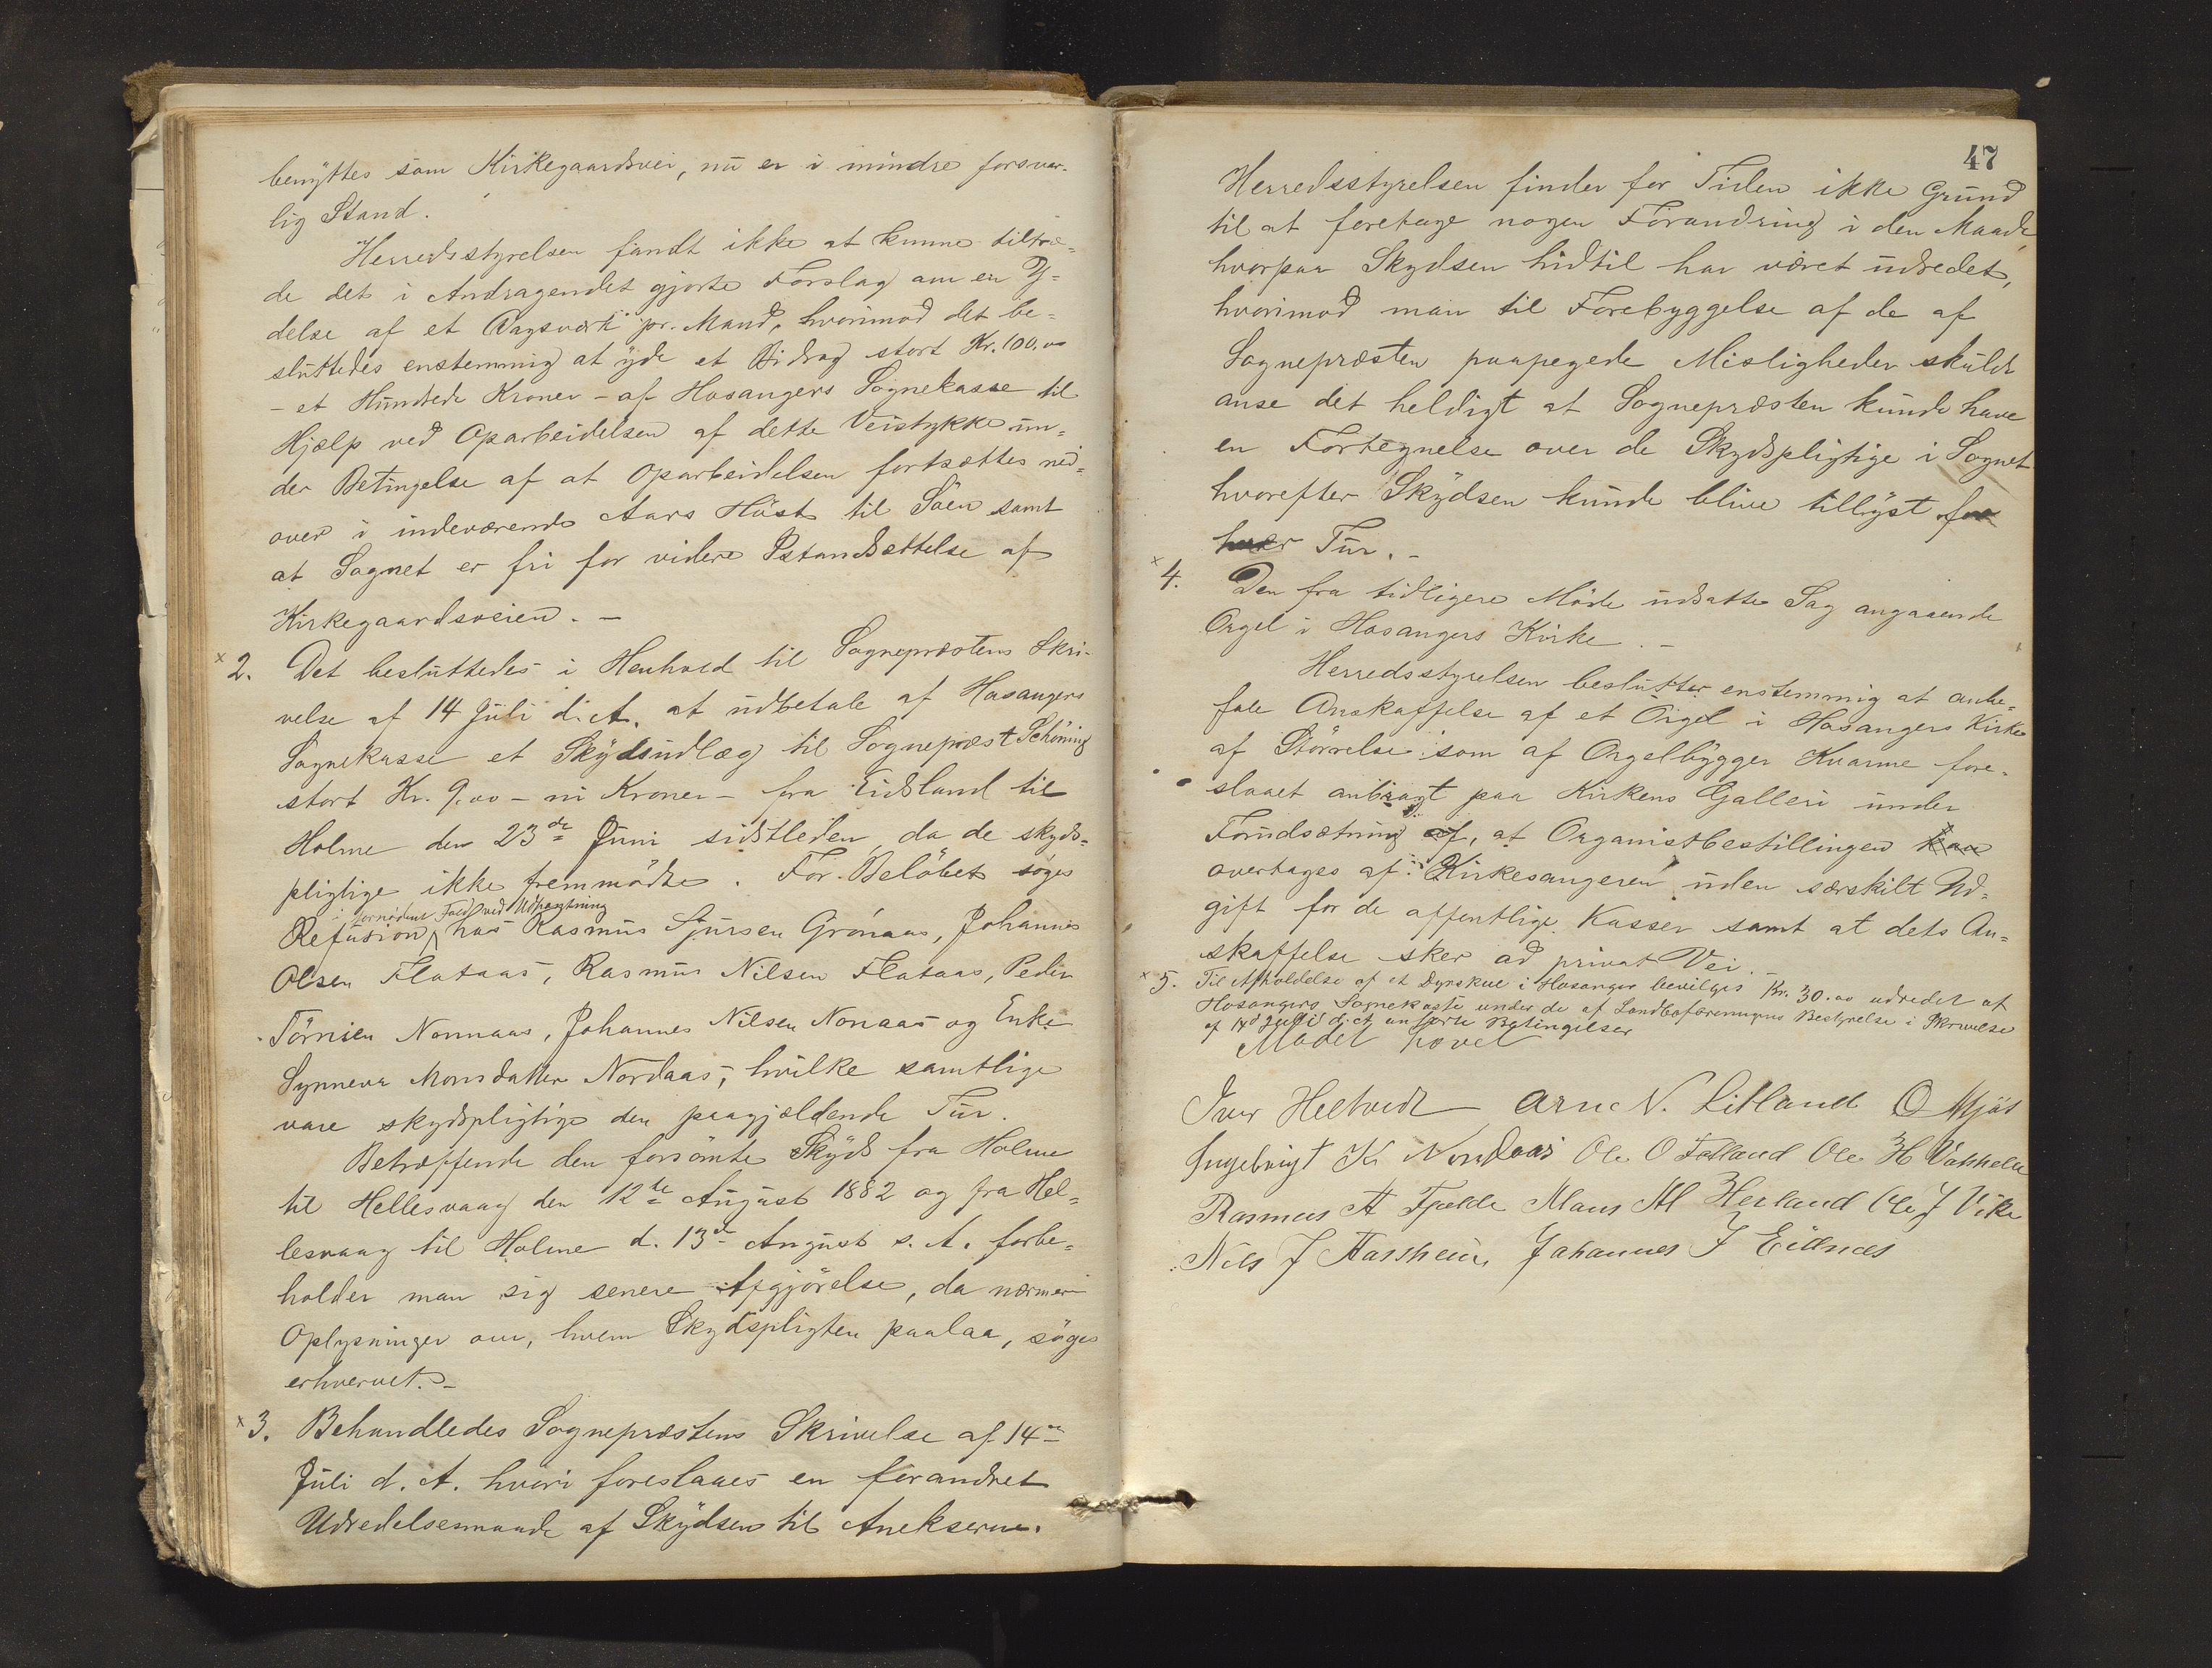 benyttes som Kirkegaardsvei, nu er i mindre forsvar-
lig Stand.
Herredsstyrelsen fandt ikke at kunne tiltræ=
de det i Andragendet gjorte Forslag om en Y=
delse af et Dagsværk pr. Mand, hvorimod det be=
sluttedes enstemmig at yde et Bidrag stort Kr. 100.00
- et Hundrede Kroner - af Hosangers Sognekasse til
Hjælp ved Oparbeidelsen af dette Veistykke un=
der Betingelse af at Oparbeidelsen fortsættes ned=
over i indeværende Aars Høst til Søen samt
at Sognet er fri for videre Istandsættelse af
Kirkegaardsveien. -
x 2. Det besluttedes i Henhold til Sognepræstens Skri-
velse af 14 Juli d. A. at udbetale af Hosangers
Sognekasse et Skydsudlæg til Sognepræst Schöning
stort Kr. 9.00 - ni Kroner - fra Eidsland til
Holme den 23de Juni sidstleden, da de skyds=
pligtige ikke fremmødte. For Beløbet søges
fornødent Fald ved Udpantning
Refusion hos Rasmus Sjursen Grønaas, Johannes
Olsen Flataas, Rasmus Nilsen Flataas, Peder
Tørrisen Nonnaas, Johannes Nilsen Nonaas og Enke
Synneva Monsdatter Nordaas, hvilke samtlige
vare skydspligtige den paagjældende Tur.
Betræffende den forsømte Skyds fra Holme
til Hellesvaag den 12te August 1882 og fra Hel=
lesvaag til Holme d. 13de August s. A. forbe=
holder man sig senere Afgjørelse, da nærmere
Oplysninger om, hvem Skydspligten paalaa, søges
erhvervet. -
x 3. Behandledes Sognepræstens Skrivelse af 14de
Juli d. A. hvori foreslaaes en forandret
Udredelsesmaade af Skydsen til Annekserne.
47
Herredsstyrelsen finder for Tiden ikke Grund
til at foretage nogen Forandring i den Maade,
hvorpaa Skydsen hidtil har været udredet,
hvorimod man til Forebyggelse af de af
Sognepræsten paapegede Misligheder skulde
anse det heldigt at Sognepræsten kunde have
en Fortegnelse over de Skydspligtige i Sognet
hvorefter Skydsen kunde blive tillyst for
hver Tur. -
x 4. Den fra tidligere Møde udsatte Sag angaaende
Orgel i Hosangers Kirke. -
Herredsstyrelsen beslutter enstemmig at anbe=
fale Anskaffelse af et Orgel i Hosangers Kirke
af Størrelse som af Orgelbygger Kvarme fore-
slaaet anbragt paa Kirkens Galleri under
Forudsætning af, at Organistbestillingen kan
overtages af Kirkesangeren uden særskilt Ud=
gift for de offentlige Kasser samt at dets An=
skaffelse sker ad privat Vei. -
x 5. Til Afholdelse af et Dyrskue i Hosanger bevilges Kr. 30.00 udredet af
Hosangers Sognekasse under de af Landboforeningens Bestyrelse i Skrivelse
af Juli d. A. anførte Betingelser
Mødet hævet
Iver Heltvedt Arne N. Litland O Mjøs
Ingebrigt K. Nordaas Ole O Fotland Ole H
Rasmus A Fjelde Mons M Herland Ole J Vike
Nils J Aasheim Johannes J Eidsnæs